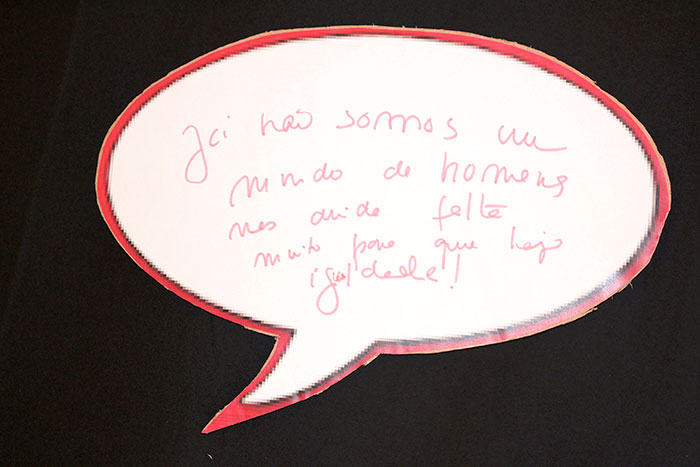 Já não somos um
mundo de homens
mas ainda falta
muito para que haja
igualdade!